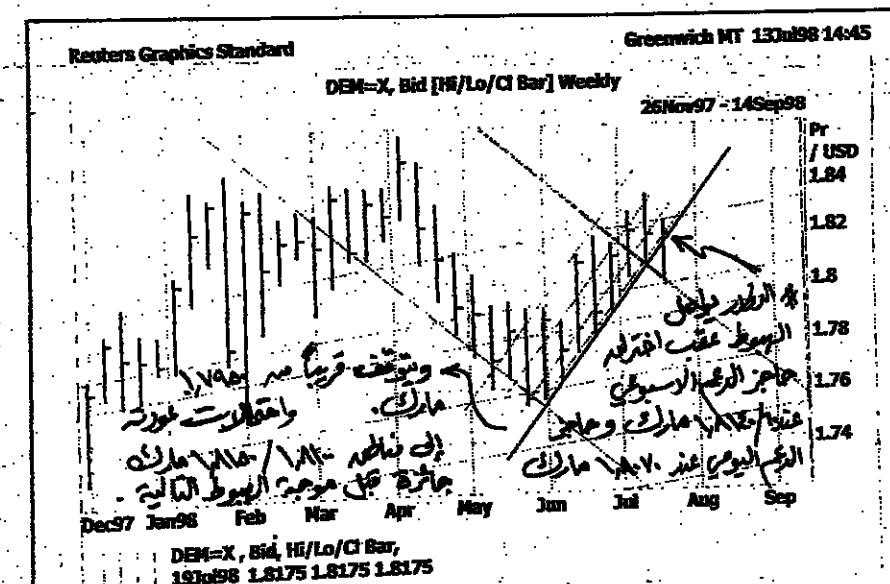 Reuters Graphics Standard
Greenwich MT 13Jul98 14:45
DEM=X, Bid [Hi/Lo/Cl Bar] Weekly
26Nov97 - 14Sep98
Pr
/ USD
1.84
1.82
1.8
1.78
1.76
1.74
* الدولار يواصل
الهبوط عقب اختراقه
حاجز الدعم الاسبوعي
عند مارك وحاجز
الدعم اليومي عند ١,٨٠٧٠ مارك
ويتوقف قريباً من ١,٧٩٥٠
مارك. واحتمالات عودته
إلى مارك
جائزة قبل موجة الهبوط التالية.
Dec97 Jan98 Feb Mar Apr May Jun Jul Aug Sep
DEM=X , Bid, Hi/Lo/Cl Bar,
19Jul98 1.8175 1.8175 1.8175